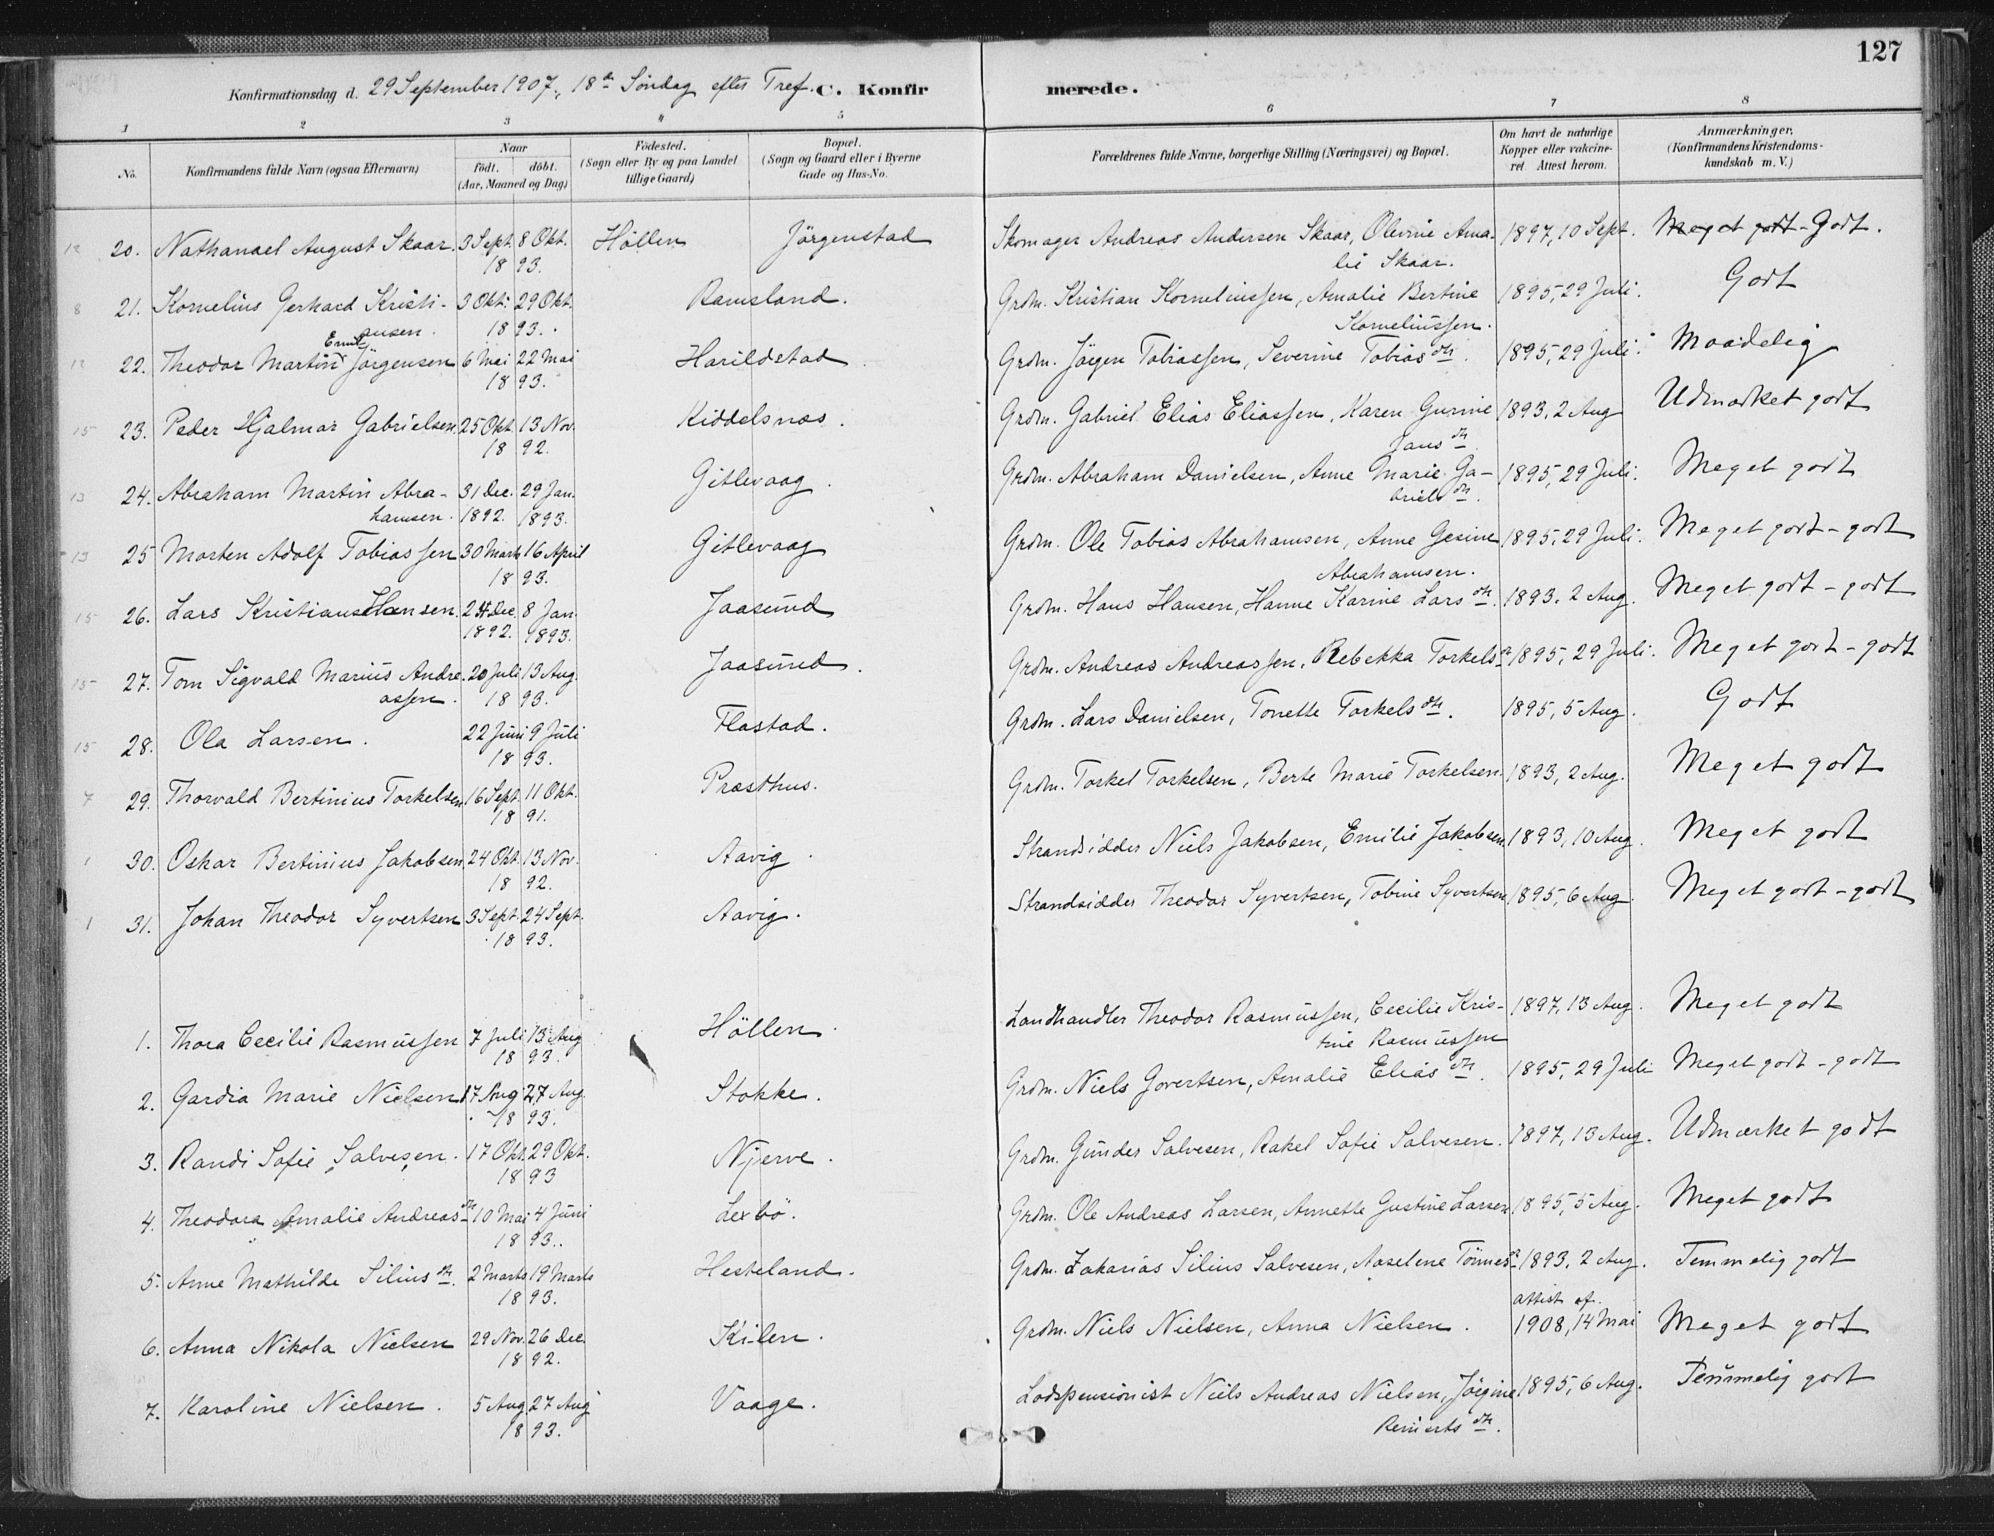 127
Konfirmationsdag d. 29 September 1907, 18de Søndag efter Tref. C. Konfir merede.
1 2 3 4 5 6 7 8
No. Konfirmandens fulde Navn (ogsaa Efternavn) Naar født. døbt. (Aar, Maaned og Dag) Födested. (Sogn eller By og paa Landet tillige Gaard) Bopæl. (Sogn og Gaard eller i Byerne Gade og Hus-No. Forældrenes fulde Navne, borgerlige Stilling (Næringsvei) og Bopæl. Om havt de naturlige Kopper eller vakcineret Attest herom. Anmærkninger. (Konfirmandens Kristendomskundskab m. V.)
12 20. Nathanael August Skaar. 3 Sept. 8 Okt. Höllen Jörgenstad Skomager Andreas Andersen Skaar, Olevine Ama- 1897, 10 Sept. Meget godt - Godt.
1893. lie Skaar.
8 21. Kornelius Gerhard Kristi- 3 Okt. 29 Okt. Ramsland. Grdm. Kristian Korneliussen, Amalie Bertine 1895, 29 Juli. Godt
ansen. 1893. Korneliussen.
Emil
12 22. Theodor Martin Jörgensen 6 Mai 22 Mai Harildstad Grdm. Jörgen Tobiassen, Severine Tobiasdtr. 1895, 29 Juli. Maadelig
1893.
15 23. Peder Hjalmar Gabrielsen 25 Okt. 13 Nov. Kiddelsnæs. Grdm. Gabriel Elias Eliassen, Karen Gurine 1893, 2 Aug Udmærket godt
1892. Jansdtr.
13 24. Abraham Martin Abra- 31 Dec. 29 Jan. Gitlevaag. Grdm. Abraham Danielsen, Anne Marie Ga- 1895, 29 Juli. Meget godt
hamsen. 1892. 1893. brielsdtr.
13 25 Morten Adolf Tobiassen 30 Marts 16 April Gitlevaag Grdm. Ole Tobias Abrahamsen, Anne Gesine 1895, 29 Juli. Meget godt - godt
1893. Abrahamsen.
15 26. Lars Kristian Hansen. 24 Dec. 8 Jan. Jaasund Grdm. Hans Hansen, Hanne Karine Larsdtr. 1893. 2 Aug. Meget godt - godt
1892. 1893.
15 27. Tom Sigvald Marius Andre- 20 Juli 13 Aug. Jaasund. Grdm. Andreas Andreassen, Rebekka Torkelsd. 1895, 29 Juli. Meget godt - godt
assen. 1893.
15 28. Ola Larsen. 22 Juni 9 Juli Flastad. Grdm. Lars Danielsen, Tonette Torkelsdtr. 1895, 5 Aug. Godt
1893.
7 29. Thorvald Bertinius Torkelsen 16 Sept. 11 Okt. Præsthus. Grdm. Torkel Torkelsen, Berte Marie Torkelsen. 1893, 2 Aug. Meget godt
1891.
1 30. Oskar Bertinius Jakobsen. 24 Okt. 13 Nov. Aavig. Strandsidder Niels Jakobsen, Emilie Jakobsen. 1893, 10 Aug. Meget godt
1892.
1 31. Johan Theodor Syvertsen 3 Sept. 24 Sept. Aavig. Strandsidder Theodor Syvertsen, Tobine Syvertsen 1895, 6 Aug. Meget godt - godt
1893.
1. Thora Cecilie Rasmussen 7 Juli 13 Aug Höllen. Landhandler Theodor Rasmussen, Cecilie Kris- 1897, 13 Aug. Meget godt
1893. tine Rasmussen
2. Gardia Marie Nielsen 17 Aug 27 Aug. Stokke. Grdm. Niels Govertsen, Amalie Eliasdtr. 1895, 29 Juli Meget godt - godt
1893.
3. Randi Sofie Salvesen. 17 Okt. 29 Okt. Njerve. Grdm. Gunder Salvesen, Rakel Sofie Salvesen. 1897, 13 Aug. Udmærket godt
1893
4. Theodora Amalie Andreasdtr 10 Mai 4 Juni Lexbö. Grdm. Ole Andreas Larsen, Annette Gustine Larsen 1895, 5 Aug. Meget godt
1893.
5. Anne Mathilde Siliusdtr. 2 Marts 19 Marts Hesteland. Grdm. Zakarias Silius Salvesen, Aaselene Tönnesd. 1893, 2 Aug. Temmelig godt
1893.
attest af.
6. Anna Nikola Nielsen 29 Nov. 26 Dec Kilen. Grdm. Niels Nielsen, Anna Nielsen. 1908, 14 Mai Meget godt
1892.
7. Karoline Nielsen. 5 Aug 27 Aug Vaage. Lodspensionist Niels Andreas Nielsen, Jörgine 1895, 6 Aug. Temmelig godt
1893. Reinertsdtr.